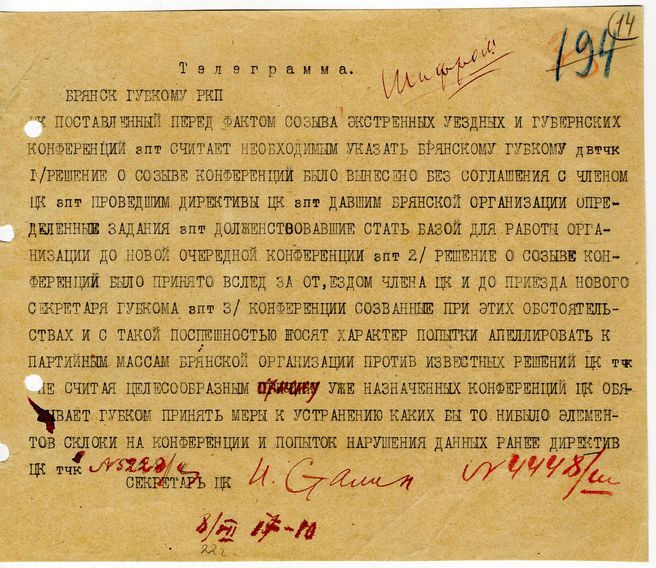 14
194
Телеграмма.
Шифром
БРЯНСК ГУБКОМУ РКП
ЦК ПОСТАВЛЕННЫЙ ПЕРЕД ФАКТОМ СОЗЫВА ЭКСТРЕННЫХ УЕЗДНЫХ И ГУБЕРНСКИХ
КОНФЕРЕНЦИЙ зпт СЧИТАЕТ НЕОБХОДИМЫМ УКАЗАТЬ БРЯНСКОМУ ГУБКОМУ двтчк
I/РЕШЕНИЕ О СОЗЫВЕ КОНФЕРЕНЦИЙ БЫЛО ВЫНЕСЕНО БЕЗ СОГЛАШЕНИЯ С ЧЛЕНОМ
ЦК зпт ПРОВЕДШИМ ДИРЕКТИВЫ ЦК зпт ДАВШИМ БРЯНСКОЙ ОРГАНИЗАЦИИ ОПРЕ-
ДЕЛЕННЫЕ ЗАДАНИЯ зпт ДОЛЖЕНСТВОВАВШИЕ СТАТЬ БАЗОЙ ДЛЯ РАБОТЫ ОРГА-
НИЗАЦИИ ДО НОВОЙ ОЧЕРЕДНОЙ КОНФЕРЕНЦИИ зпт 2/ РЕШЕНИЕ О СОЗЫВЕ КОН-
ФЕРЕНЦИЙ БЫЛО ПРИНЯТО ВСЛЕД ЗА ОТ,ЕЗДОМ ЧЛЕНА ЦК И ДО ПРИЕЗДА НОВОГО
СЕКРЕТАРЯ ГУБКОМА зпт 3/ КОНФЕРЕНЦИИ СОЗВАННЫЕ ПРИ ЭТИХ ОБСТОЯТЕЛЬ-
СТВАХ И С ТАКОЙ ПОСПЕШНОСТЬЮ НОСЯТ ХАРАКТЕР ПОПЫТКИ АПЕЛЛИРОВАТЬ К
ПАРТИЙНЫМ МАССАМ БРЯНСКОЙ ОРГАНИЗАЦИИ ПРОТИВ ИЗВЕСТНЫХ РЕШЕНИЙ ЦК тчк
НЕ СЧИТАЯ ЦЕЛЕСООБРАЗНЫМ отмену УЖЕ НАЗНАЧЕННЫХ КОНФЕРЕНЦИЙ ЦК ОБЯ-
ЗЫВАЕТ ГУБКОМ ПРИНЯТЬ МЕРЫ К УСТРАНЕНИЮ КАКИХ БЫ ТО НИБЫЛО ЭЛЕМЕН-
ТОВ СКЛОКИ НА КОНФЕРЕНЦИИ И ПОПЫТОК НАРУШЕНИЯ ДАННЫХ РАНЕЕ ДИРЕКТИВ
ЦК тчк
СЕКРЕТАРЬ ЦК И. Сталин №4448/ш
8/VII 17-10
22 г.